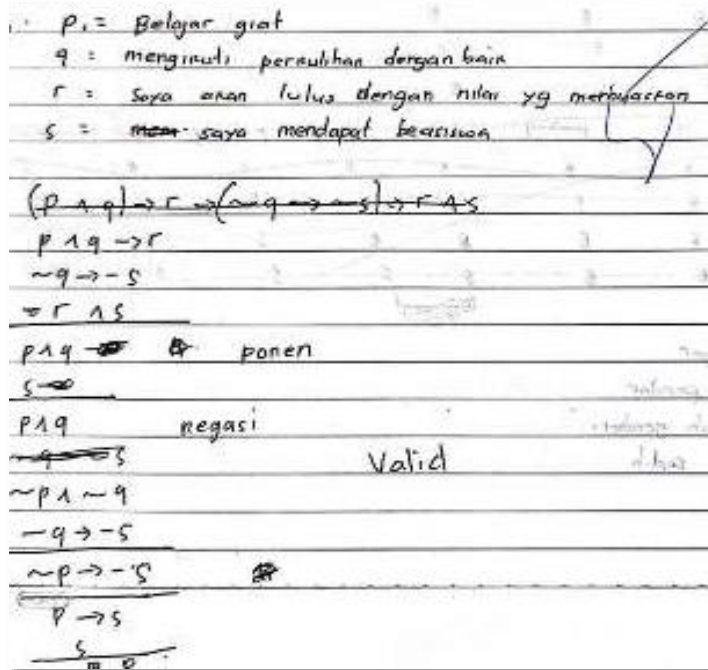 p. = Belajar giat
q = mengikuti perkulihan dengan baik
r = Saya akan lulus dengan nilai yg
s = saya mendapat beasiswa
(p ∧ q) → r → (~q → ~s) → r ∧ s
p ∧ q → r
~q → -s
= r ∧ s
p ∧ q ponen
s
p ∧ q negasi
s Valid
~p ∧ ~q
~q → -s
~p → -s
p → s
s